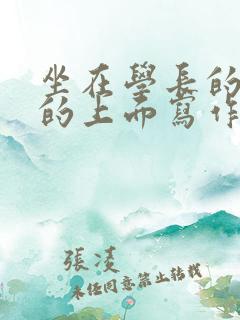 坐在學長的
的上而寫作
張凌
未经同意禁止转载